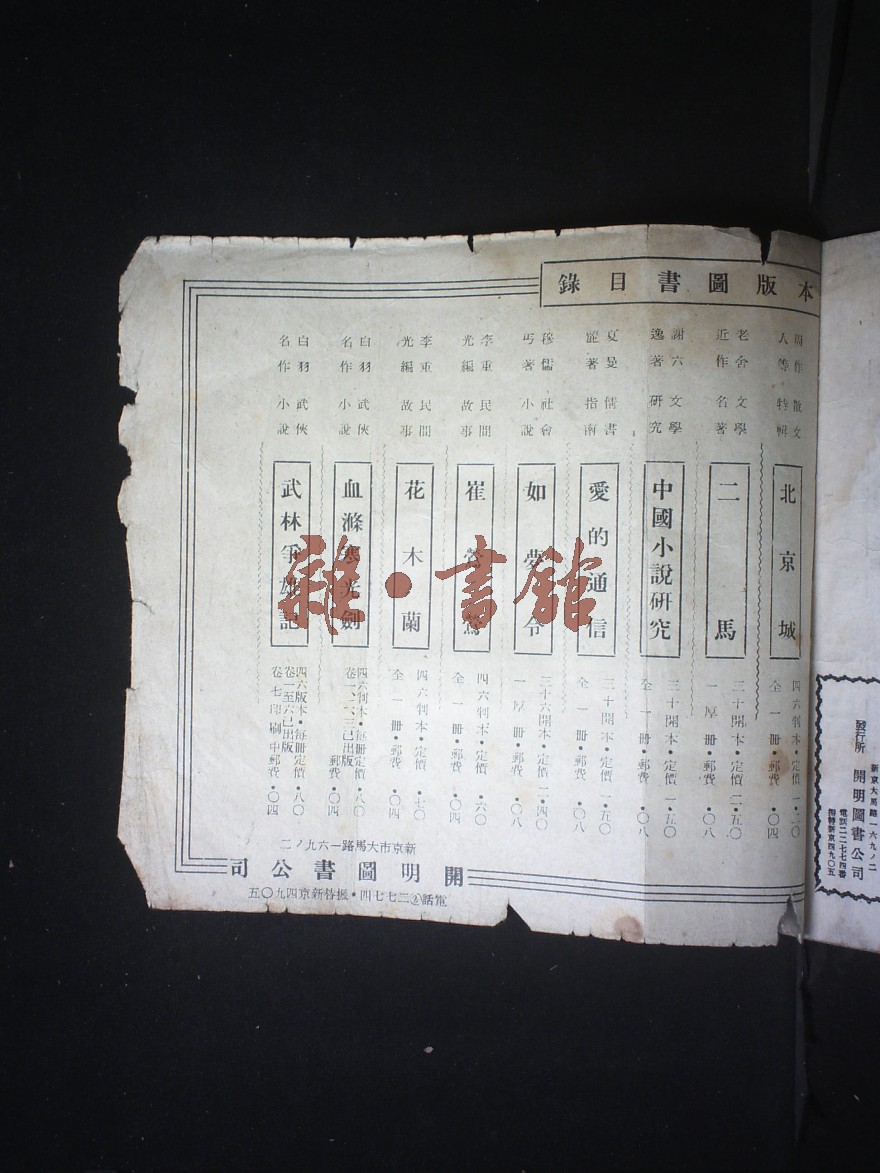 本版圖書目錄
周作人等 散文特輯
北京城
四六判本・定價一・二〇
全一冊・郵費・〇四
老舍近作 文學名著
二馬
三十開本・定價二・五〇
一厚冊・郵費・〇八
謝六逸著 文學研究
中國小說研究
三十開本・定價一・五〇
全一冊・郵費・〇八
夏曼䨇著 情書指南
愛的通信
三十開本・定價一・五〇
全一冊・郵費・〇八
穆儒丐著 社會小說
如夢令
三十六開本・定價二・四〇
一厚冊・郵費・〇八
李重光編 民間故事
崔鶯鶯
四六判本・定價・六〇
全一冊・郵費・〇四
李重光編 民間故事
花木蘭
四六判本・定價・七〇
全一冊・郵費・〇四
白羽名作 武俠小說
血滌寒光劍
四六判本・每冊定價・八〇
卷一、二、三已出版
郵費・〇四
白羽名作 武俠小說
武林爭雄記
四六版本・每冊定價・八〇
卷一至六已出版
卷七印刷中郵費・〇四
新京市大馬路一六九ノ二
開明圖書公司
電話②二七七四・振替新京四九〇五
發行所
新京大馬路一六九ノ二
開明圖書公司
電話二二七七四番
振替新京四九〇五
雜・書館